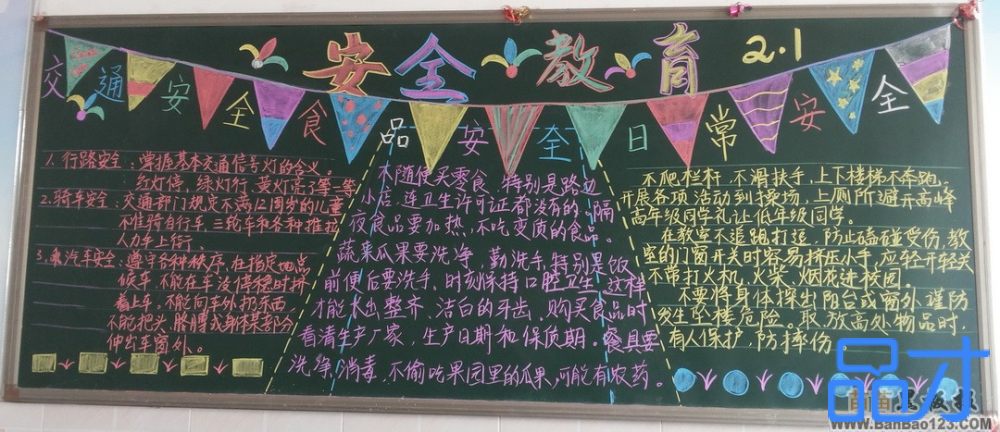 安全教育
2.1
交通安全 食品安全 日常安全
1.行路安全：掌握基本交通信号灯的含义。
红灯停，绿灯行，黄灯亮了等一等
2.骑车安全：交通部门规定不满12周岁的儿童
不准骑自行车，三轮车和各种推拉
人力车上街。
3.乘汽车安全：遵守各种秩序，在指定地点
候车，不能在车没停稳时挤
着上车。不能向车外扔东西
不能把头、胳膊或身体某部分
伸出车窗外。
不随便买零食，特别是路边
小店，连卫生许可证都没有的。隔
夜食品要加热，不吃变质的食品。
蔬菜瓜果要洗净，勤洗手，特别是饭
前便后要洗手，时刻保持口腔卫生，这样
才能水出整齐、洁白的牙齿，购买食品时
看清生产厂家，生产日期和保质期。餐具要
洗净，消毒，不偷吃果园里的瓜果，可能有农药。
不爬栏杆，不滑扶手，上下楼梯不奔跑，
开展各项活动到操场，上厕所避开高峰
高年级同学礼让低年级同学。
在教室不追跑打逗，防止磕碰受伤，教
室的门窗开关时容易挤压小手，应轻开轻关
不带打火机，火柴，烟花进校园。
不要将身体探出阳台或窗外谨防
发生坠楼危险。取，放高处物品时，
有人保护，防摔伤
品才
黑板报
www.BanBao123.com